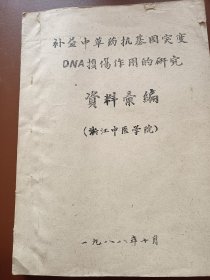 补益中草药抗基因突变
DNA损伤作用的研究
資料彙編
(浙江中医学院)
一九八八年十月